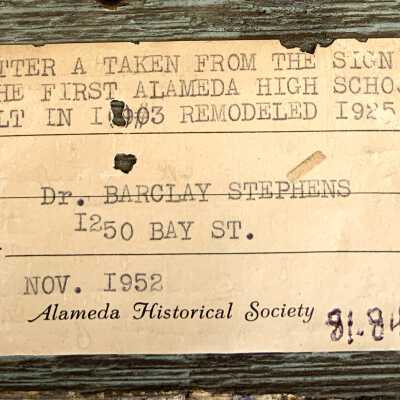 TTER A TAKEN FROM THE SIGN
HE FIRST ALAMEDA HIGH SCHO
LT IN 1903 REMODELED 1925
Dr. BARCLAY STEPHENS
1250 BAY ST.
NOV. 1952
Alameda Historical Society
81.84